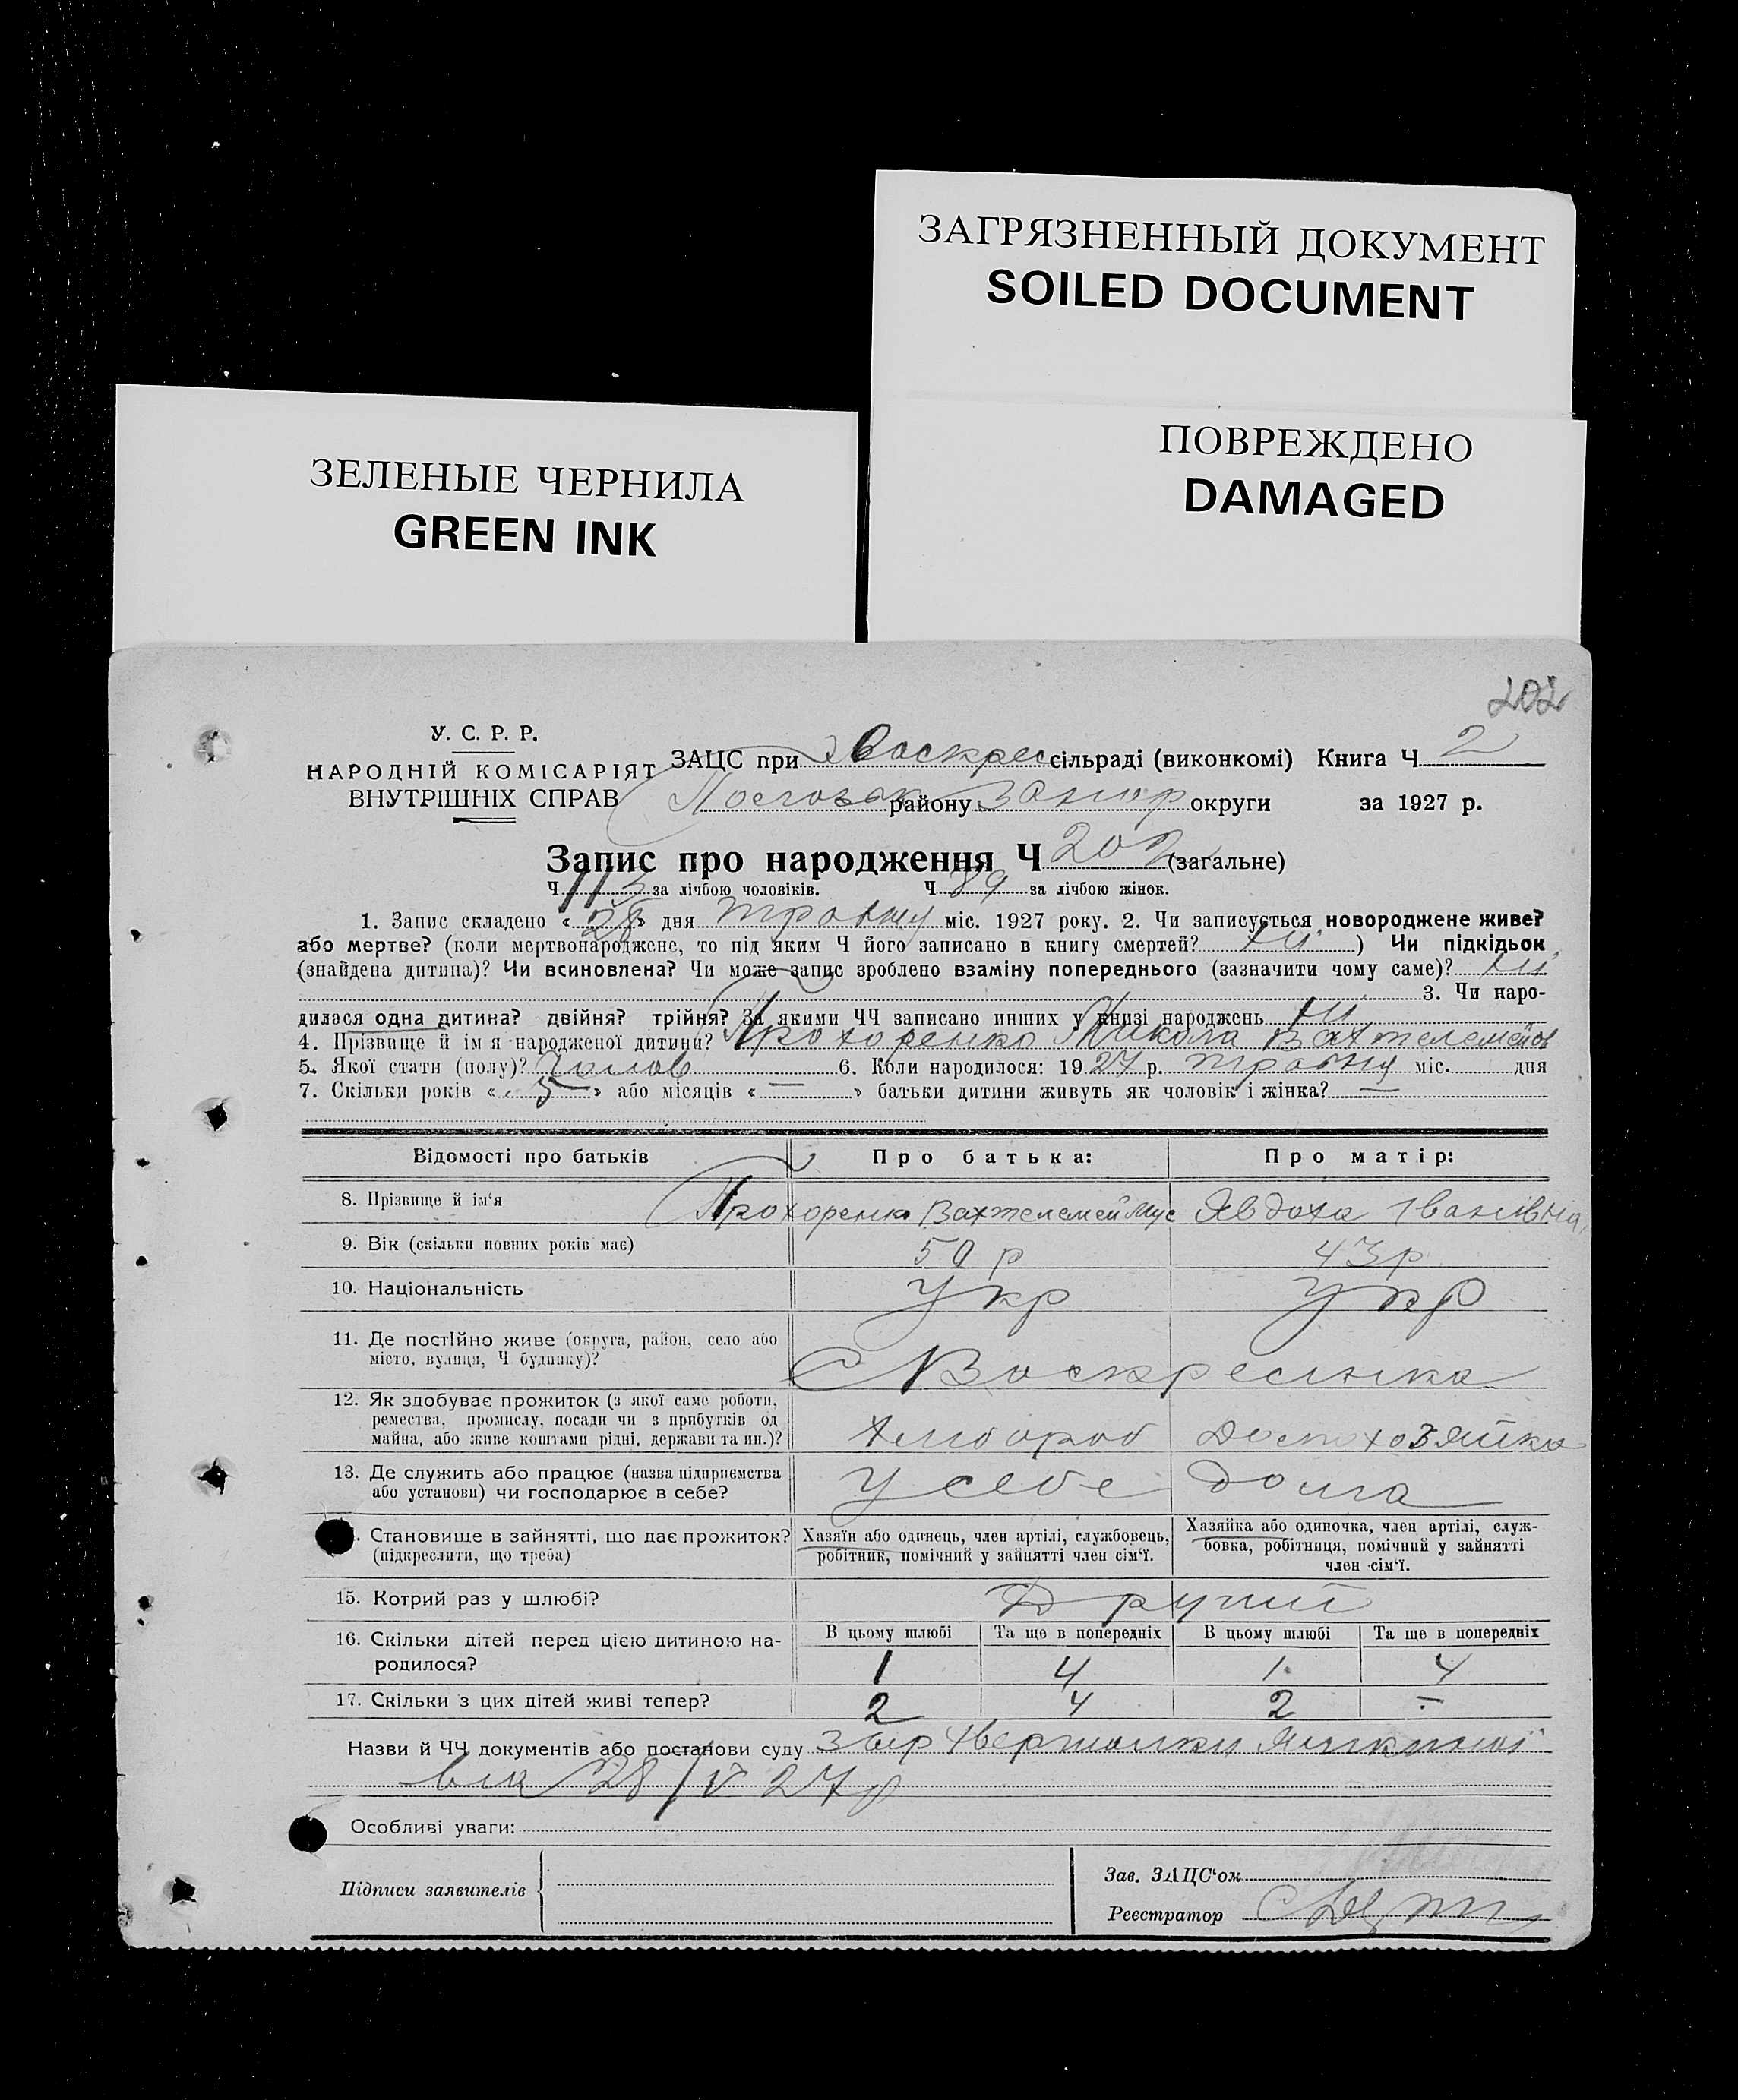 ЗАГРЯЗНЕННЫЙ ДОКУМЕНТ
SOILED DOCUMENT
ПОВРЕЖДЕНО
DAMAGED
ЗЕЛЕНЫЕ ЧЕРНИЛА
GREEN INK
202
У. С. Р. Р.
НАРОДНІЙ КОМІСАРІЯТ
ВНУТРІШНІХ СПРАВ
ЗАЦС при Воскрес сільраді (виконкомі) Книга Ч 2
району Запор округи за 1927 р.
Запис про народження Ч 202 (загальне)
Ч 113 за лічбою чоловіків. Ч 89 за лічбою жінок.
1. Запис складено « 28 » дня травня міс. 1927 року. 2. Чи записується новороджене живе?
або мертве? (коли мертвонароджене, то під яким Ч його записано в книгу смертей? ні ) Чи підкідьок
(знайдена дитина)? Чи всиновлена? Чи може запис зроблено взаміну попереднього (зазначити чому саме)? ні
3. Чи наро-
дилася одна дитина? двійня? трійня? За якими ЧЧ записано инших у книзі народжень ні
4. Прізвище й ім'я народженої дитини? Прохоренко Микола Вахтелемейов
5. Якої стати (полу)? Чолов 6. Коли народилося: 1927 р. травня міс. дня
7. Скільки років « 5 » або місяців « — » батьки дитини живуть як чоловік і жінка? —
Відомості про батьків Про батька: Про матір:
8. Прізвище й ім'я Прохоренко Вахтелемей Явдоха Іванівна
9. Вік (скільки повних років має) 50 р 43 р
10. Національність Укр Укр
11. Де постійно живе (округа, район, село або
місто, вулиця, Ч будинку)? С Воскресинка
12. Як здобуває прожиток (з якої саме роботи,
ремества, промислу, посади чи з прибутків од
майна, або живе коштами рідні, держави та ин.)? Хлібороб Домохозяйка
13. Де служить або працює (назва підприємства
або установи) чи господарює в себе? У себе дома
. Становище в зайнятті, що дає прожиток?
(підкреслити, що треба)
Хазяїн або одинець, член артілі, службовець,
робітник, помічний у зайнятті член сім'ї.
Хазяйка або одиночка, член артілі, служ-
бовка, робітниця, помічний у зайнятті
член сім'ї.
15. Котрий раз у шлюбі? Другий
16. Скільки дітей перед цією дитиною на-
родилося?
В цьому шлюбі Та ще в попередніх В цьому шлюбі Та ще в попередніх
1 4 1 4
17. Скільки з цих дітей живі тепер? 2 4 2 —
Назви й ЧЧ документів або постанови суду
28/V 27р
Особливі уваги:
Підписи заявителів
Зав. ЗАЦС'ом
Реєстратор